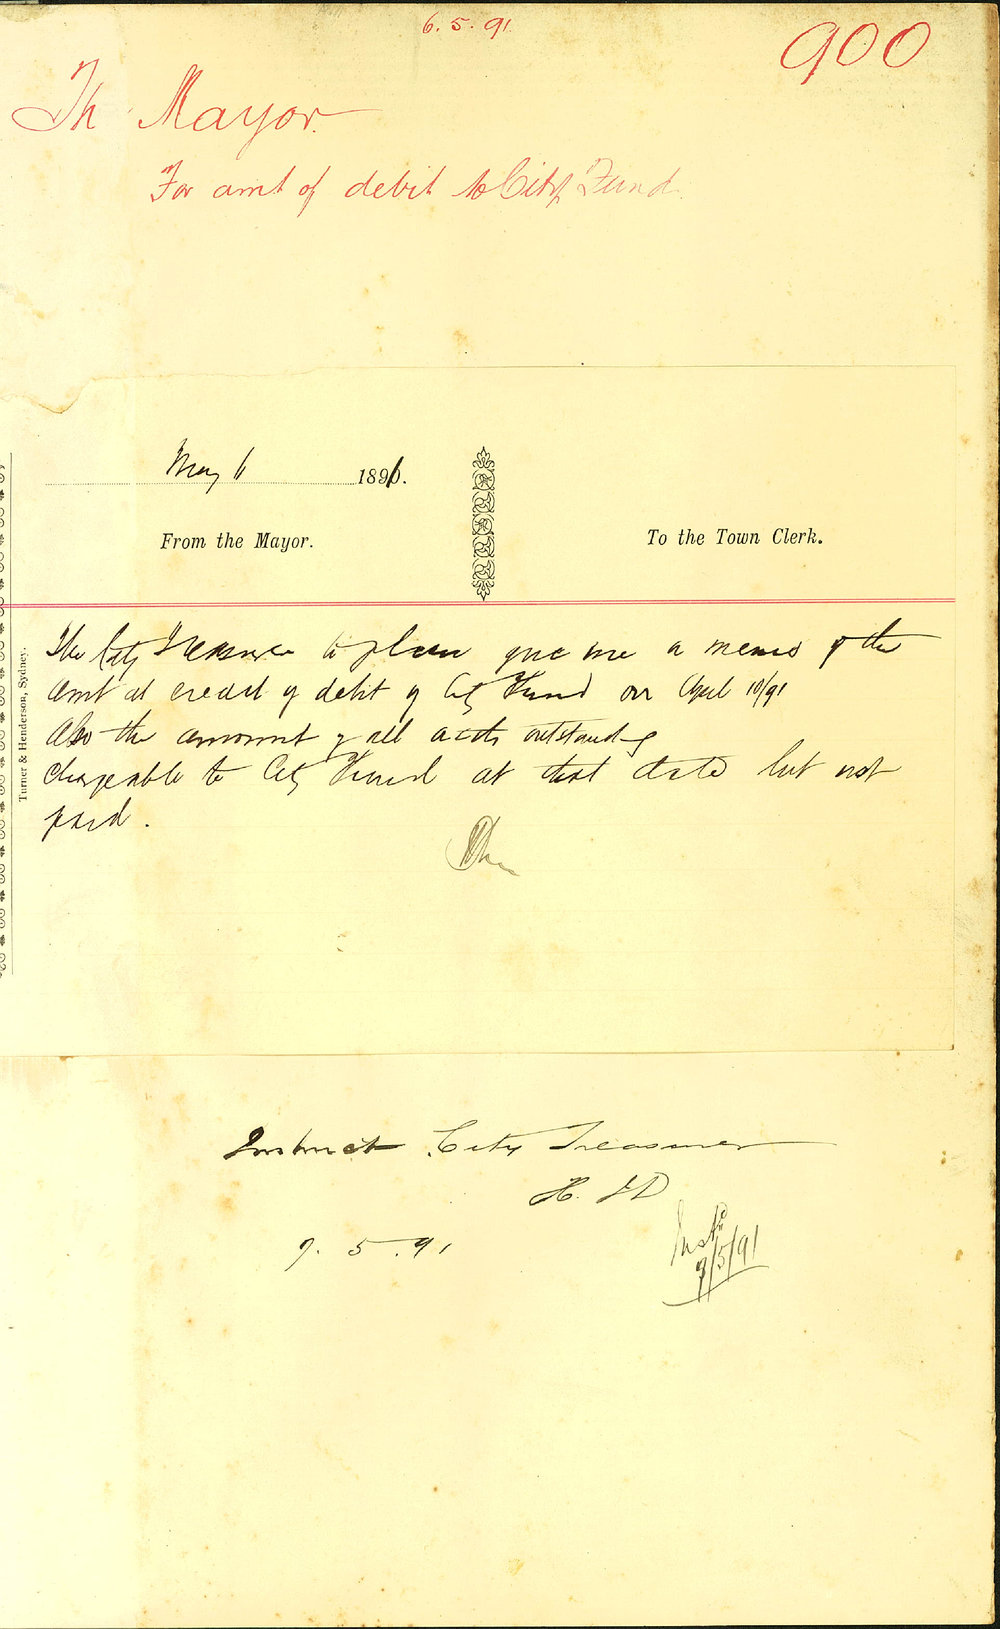 6.5.91
900
The Mayor.
For amt of debit to City Fund.
May 6 1891.
From the Mayor.
To the Town Clerk.
The City Treasurer to please give me a memo of the
amt at credit or debit of City Fund on April 10/91
Also the amount of all accts outstanding
chargeable to City Fund at that date but not
paid.
Turner & Henderson, Sydney.
Instruct City Treasurer
7.5.91
9/5/91